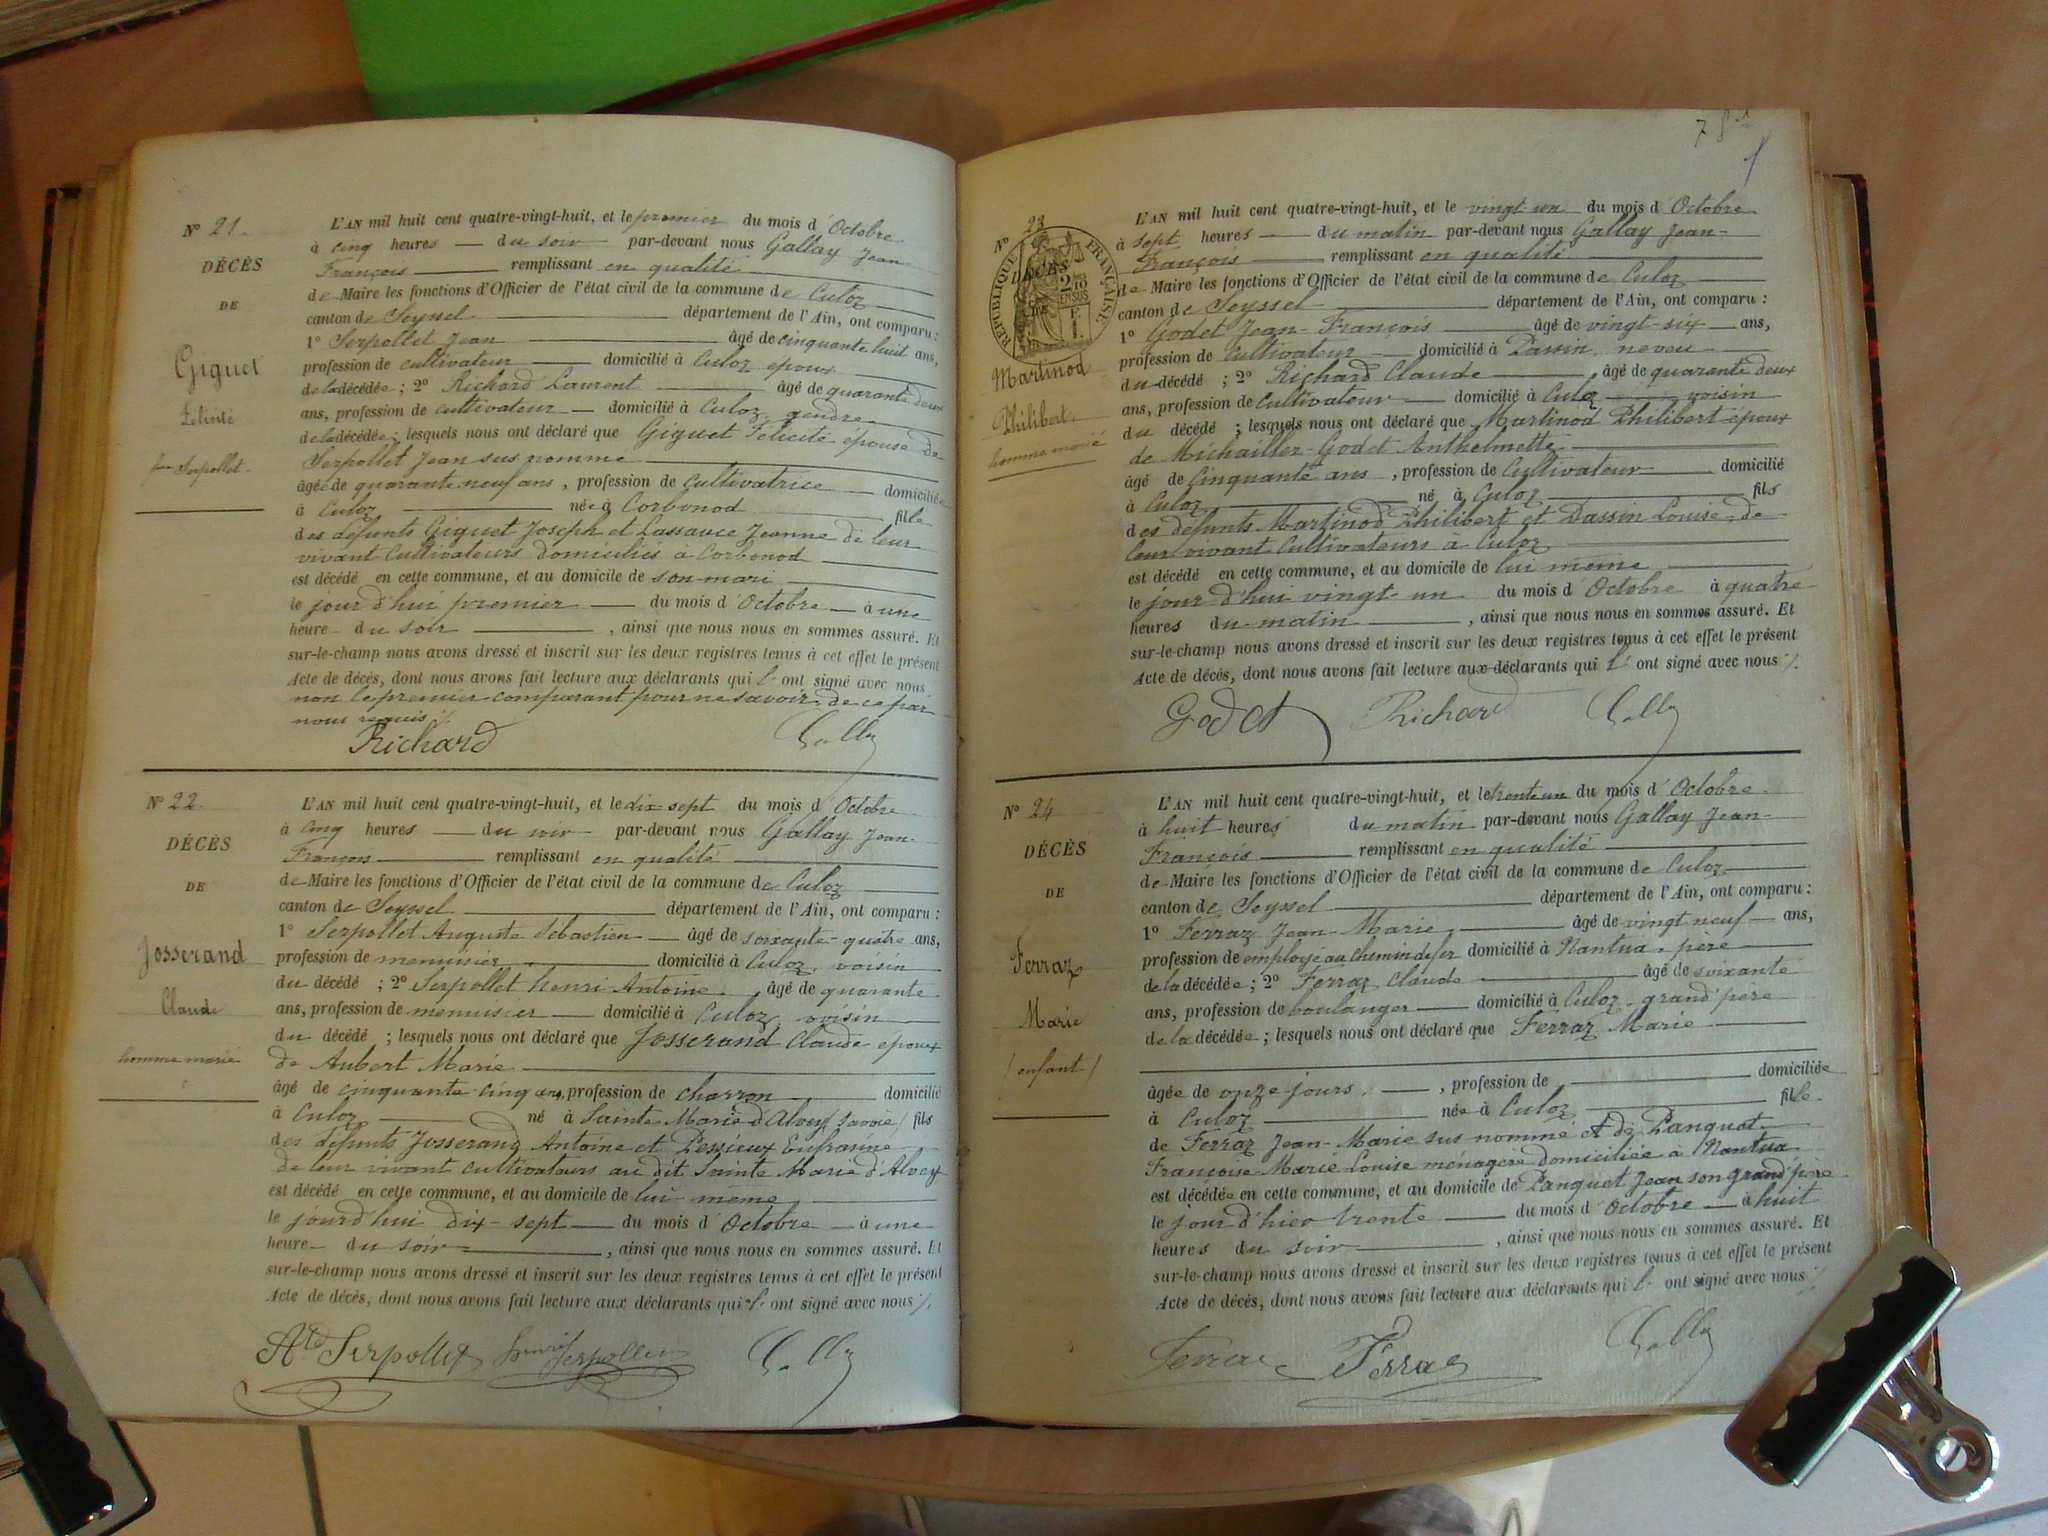 N° 21.
DÉCÈS
DE
Giguet
Félicité
fme Serpollet.
L'AN mil huit cent quatre-vingt-huit, et le premier du mois d'Octobre
à cinq heures du soir par-devant nous Gallay Jean
François remplissant en qualité
de Maire les fonctions d'Officier de l'état civil de la commune de Culoz
canton de Seyssel département de l'Ain, ont comparu :
1° Serpollet Jean âgé de cinquante huit ans,
profession de cultivateur domicilié à Culoz époux
de la décédée ; 2° Richard Laurent âgé de quarante deux
ans, profession de cultivateur domicilié à Culoz, gendre
de la décédée ; lesquels nous ont déclaré que Giguet Félicité épouse de
Serpollet Jean sus nommé
âgée de quarante neuf ans, profession de Cultivatrice domiciliée
à Culoz née à Corbonod fille
des défunts Giguet Joseph et Lassauce Jeanne de leur
vivant Cultivateurs domiciliés à Corbonod
est décédé en cette commune, et au domicile de son mari
le jour d'hui premier du mois d'Octobre à une
heure du soir, ainsi que nous nous en sommes assuré. Et
sur-le-champ nous avons dressé et inscrit sur les deux registres tenus à cet effet le présent
Acte de décès, dont nous avons fait lecture aux déclarants qui l' ont signé avec nous
non le premier comparant pour ne savoir, de ce par
nous requis
Richard
N° 22.
DÉCÈS
DE
Josserand
Claude
homme marié
L'AN mil huit cent quatre-vingt-huit, et le dix sept du mois d'Octobre
à cinq heures du soir par-devant nous Gallay Jean-
François remplissant en qualité
de Maire les fonctions d'Officier de l'état civil de la commune de Culoz
canton de Seyssel département de l'Ain, ont comparu :
1° Serpollet Auguste Sébastien âgé de soixante-quatre ans,
profession de menuisier domicilié à Culoz, voisin
du décédé ; 2° Serpollet henri Antoine. âgé de quarante
ans, profession de menuisier domicilié à Culoz voisin
du décédé ; lesquels nous ont déclaré que Josserand Claude époux
de Aubert Marie
âgé de cinquante cinq ans, profession de charron domicilié
à Culoz né à Sainte Marie d'Alvey (Savoie) fils
des défunts Josserand Antoine et Pessieux Eufrasine
de leur vivant cultivateurs au dit Sainte Marie d'Alvey
est décédé en cette commune, et au domicile de lui même
le jourd'hui dix-sept du mois d'Octobre à une
heure du soir, ainsi que nous nous en sommes assuré. Et
sur-le-champ nous avons dressé et inscrit sur les deux registres tenus à cet effet le présent
Acte de décès, dont nous avons fait lecture aux déclarants qui l' ont signé avec nous
Ate Serpollet Henri Serpollet
N° 23
RÉPUBLIQUE FRANÇAISE
DÉCÈS
DE
Martinod
Philibert.
homme marié
L'AN mil huit cent quatre-vingt-huit, et le vingt-un du mois d'Octobre
à sept heures du matin par-devant nous Gallay Jean-
François remplissant en qualité
de Maire les fonctions d'Officier de l'état civil de la commune de Culoz
canton de Seyssel département de l'Ain, ont comparu :
1° Godet Jean-François âgé de vingt-six ans,
profession de Cultivateur domicilié à Passin. neveu
du décédé ; 2° Richard Claude âgé de quarante deux
ans, profession de Cultivateur domicilié à Culoz voisin
du décédé ; lesquels nous ont déclaré que Martinod Philibert époux
de Michaillet-Godet Anthelmette
âgé de Cinquante ans, profession de Cultivateur domicilié
à Culoz né à Culoz fils
des défunts Martinod Philibert et Dassin Louise, de
leur vivant Cultivateurs à Culoz
est décédé en cette commune, et au domicile de lui même
le jour d'hui vingt-un du mois d'Octobre à quatre
heures du matin, ainsi que nous nous en sommes assuré. Et
sur-le-champ nous avons dressé et inscrit sur les deux registres tenus à cet effet le présent
Acte de décès, dont nous avons fait lecture aux déclarants qui l' ont signé avec nous
Godet Richard
N° 24
DÉCÈS
DE
Ferraz
Marie
(enfant)
L'AN mil huit cent quatre-vingt-huit, et le trente un du mois d'Octobre
à huit heures du matin par-devant nous Gallay Jean-
François remplissant en qualité
de Maire les fonctions d'Officier de l'état civil de la commune de Culoz
canton de Seyssel département de l'Ain, ont comparu :
1° Ferraz Jean-Marie âgé de vingt neuf ans,
profession de employé au Chemin de fer domicilié à Nantua. père
de la décédée ; 2° Ferraz Claude âgé de soixante
ans, profession de boulanger domicilié à Culoz grand'père
de la décédée ; lesquels nous ont déclaré que Ferraz Marie
âgée de onze jours, profession de domiciliée
à Culoz née à Culoz fille
de Ferraz Jean-Marie sus nommé et de Panquet
Françoise Marie Louise ménagère domiciliée à Nantua
est décédée en cette commune, et au domicile de Panquet Jean son grand'père
le jour d'hier trente du mois d'Octobre à huit
heures du soir, ainsi que nous nous en sommes assuré. Et
sur-le-champ nous avons dressé et inscrit sur les deux registres tenus à cet effet le présent
Acte de décès, dont nous avons fait lecture aux déclarants qui l' ont signé avec nous
Ferraz Ferraz